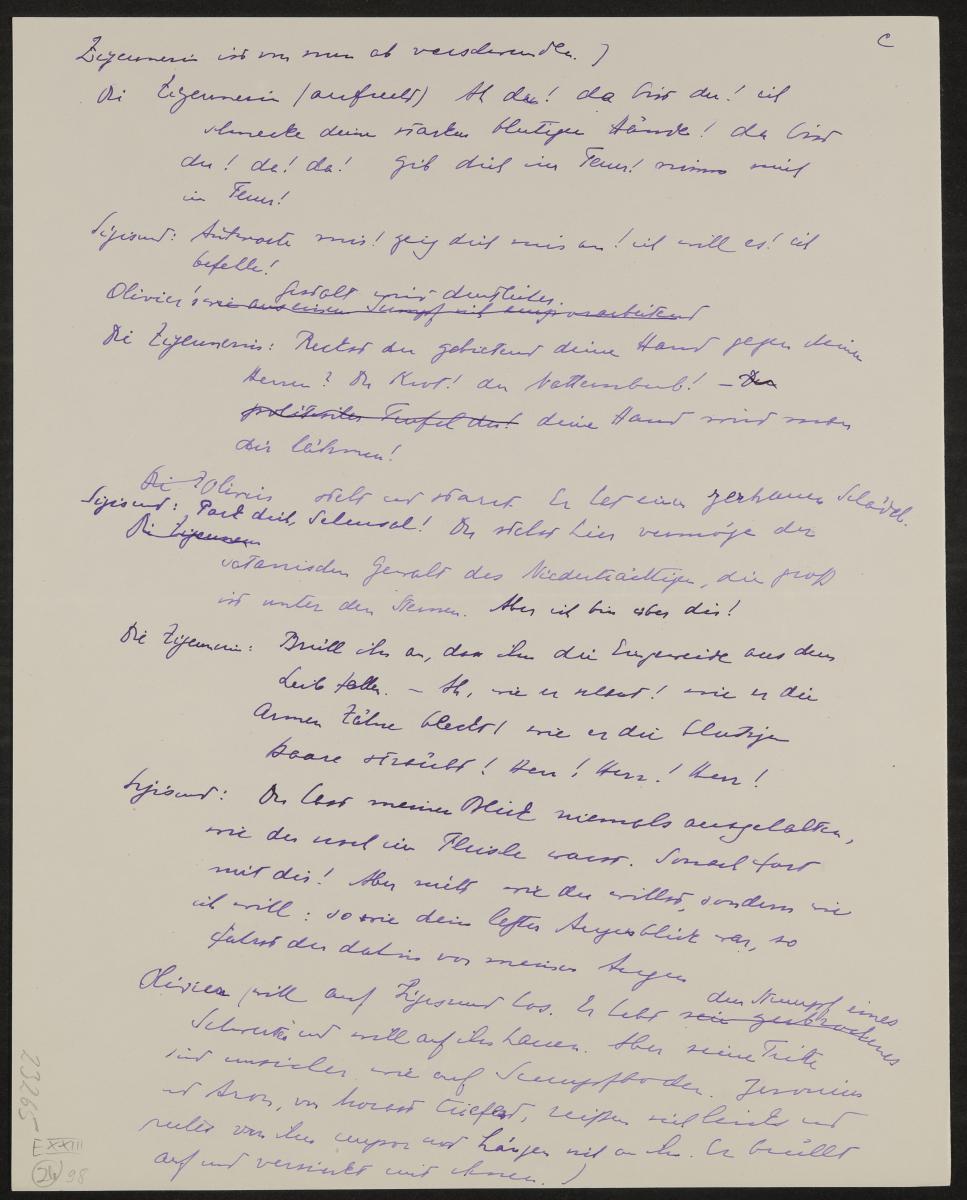 C
Zigeunerin ist von nun ab verschwunden.)
Die Zigeunerin (aufrecht) Ah da! da bist du! ich
schmecke deine starken blutigen Hände! da bist
du! da! da! gib dich im Feuer! nimm mich
im Feuer!
Sigismund: Antworte mir! zeig dich mir an! ich will es! ich
befehle!
Gestalt wird deutlicher.
Olivier's wie aus einem Sumpf sich emporarbeitend
Die Zigeunerin: Reckst du gebietend deine Hand gegen deinen
Herrn? Du Kröt! du Natternbub! – Du
Teufel du! deine Hand wird
dir lähmen!
Die Z Olivier steht und starrt. Er hat einen zerhauenen Schädel.
Sigismund: Pack dich, Scheusal! Du stehst hier vermöge der
Die Zigeunerin
satanischen Gewalt des Niederträchtigen, die groß
ist unter den Sternen. Aber ich bin über dir!
Die Zigeunerin: Brüll ihn an, dass ihm die Eingeweide aus dem
Leib fallen. – Ah, wie er ! wie er die
Armen Zähne bleckt! wie er die blutigen
Haare sträubt! Herr! Herr! Herr!
Sigismund: Du hast meinen Blick niemals ausgehalten,
wie du noch im Fleische warst. Sonach fort
mit dir! Aber nicht wie du willst, sondern wie
ich will: so wie dein letzter Augenblick war, so
fahrst du dahin vor meinen Augen
Olivier (will auf Sigismund los. Er hebt den Stumpf eines
sein zerbrochenes
Schwertes und will auf ihn hauen. Aber seine Tritte
sind unsicher wie auf Sumpfboden. Jeronim
und Aron, von Morast triefend, reißen sich links und
rechts von ihm empor und hängen sich an ihn. Er brüllt
auf und versinkt mit ihnen.)
23265
E XXIII
24 98